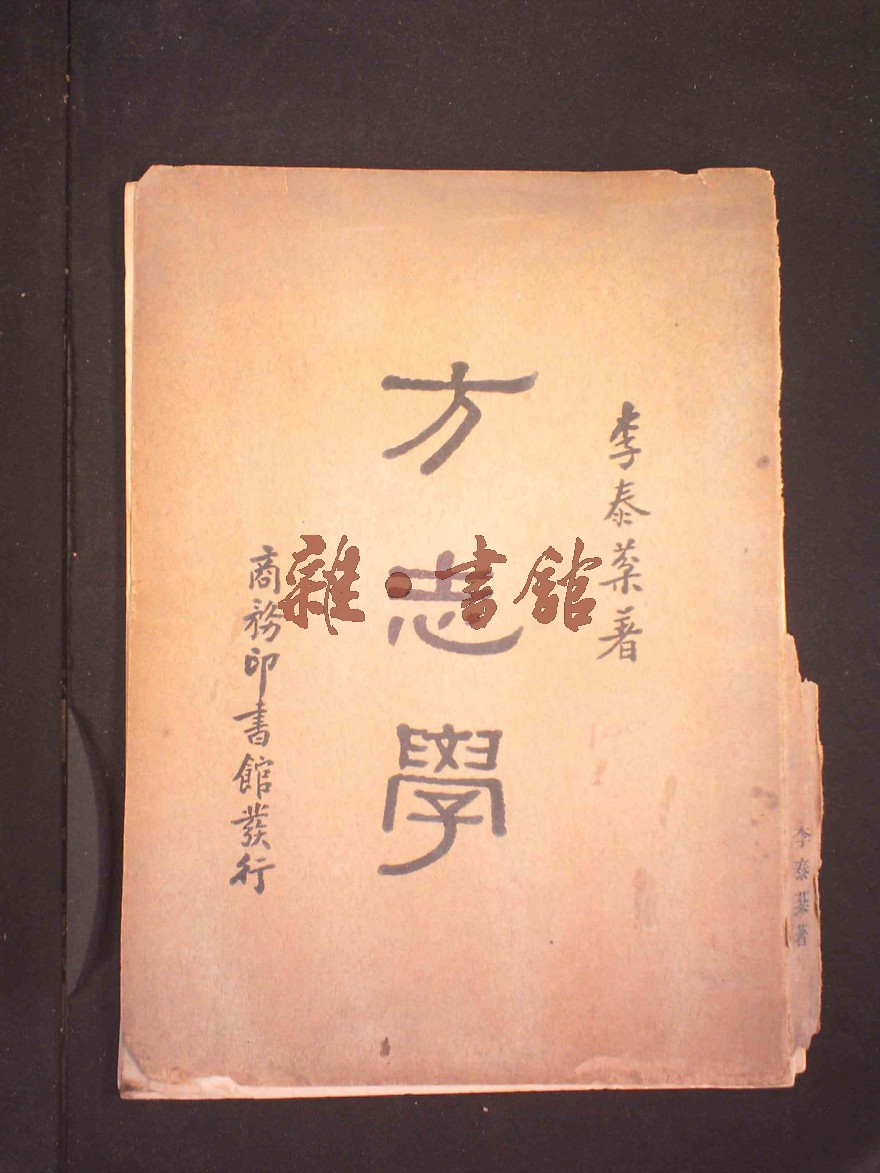 李泰棻著
方志學
商務印書館發行
雜·書館
李泰棻著